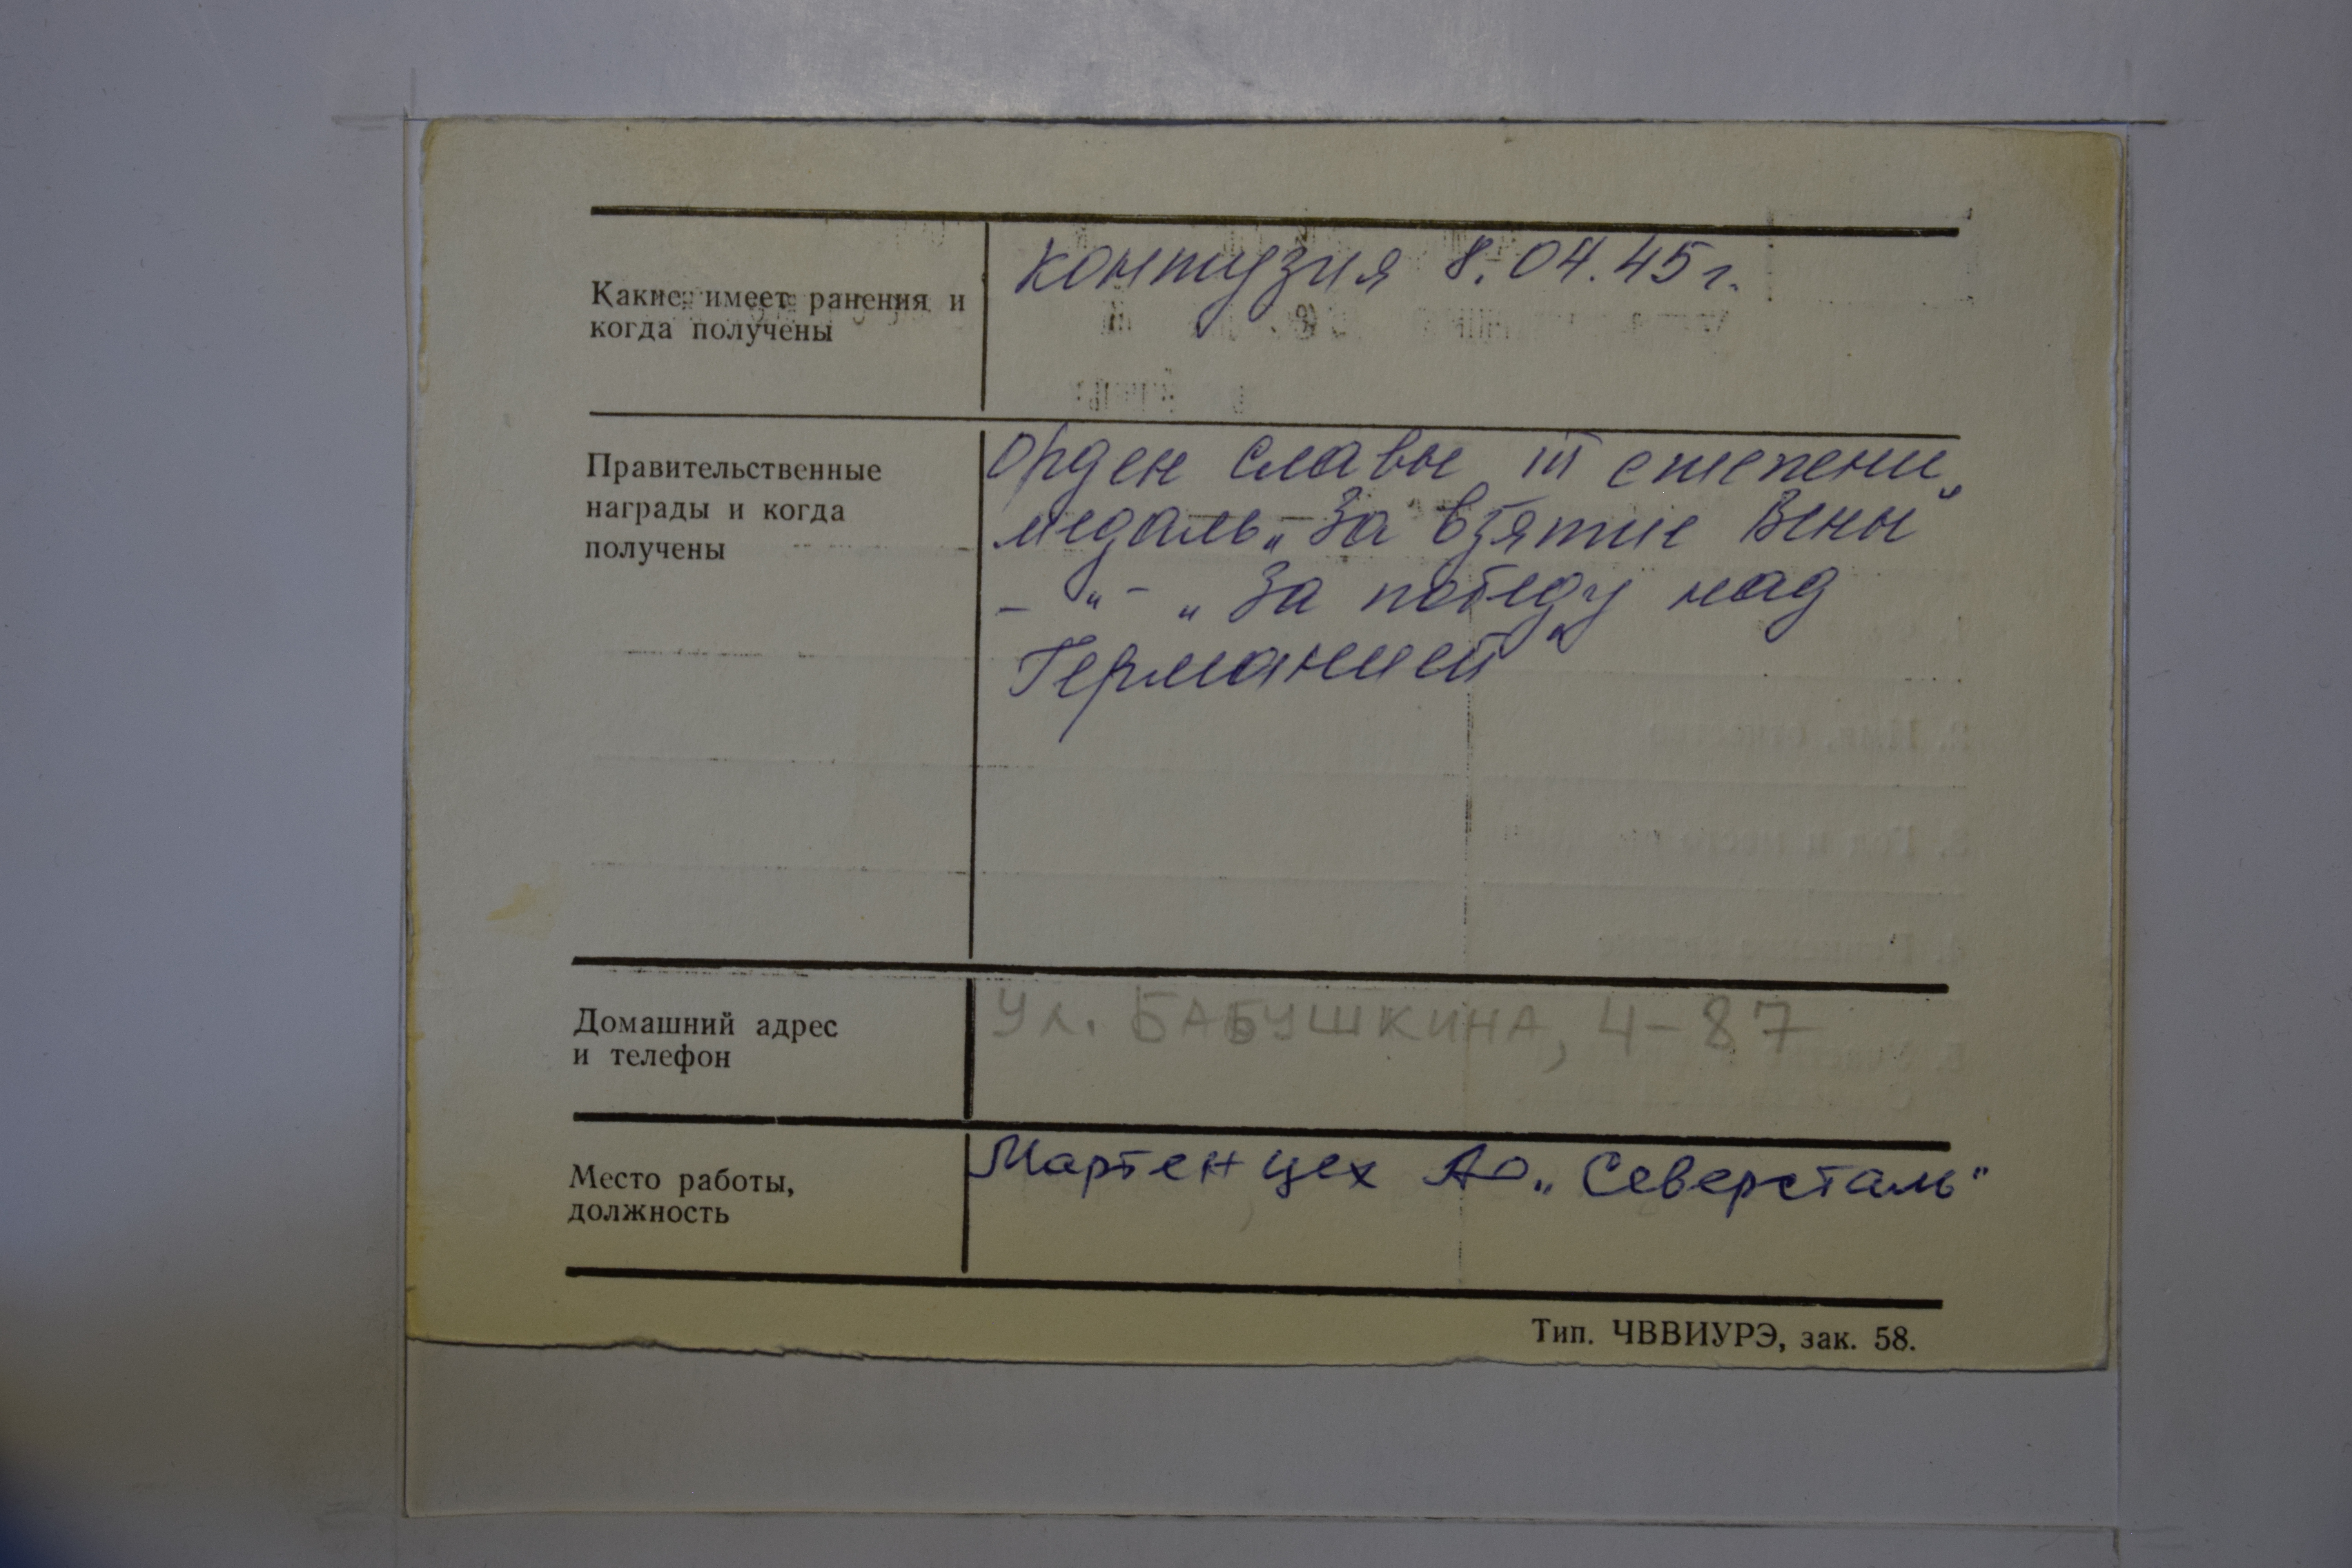 Какие имеет ранения и
когда получены
контузия 8.04.45г.
Правительственные
награды и когда
получены
Орден славы III степени
медаль „За взятие Вены"
– " – „За победу над
Германией"
Домашний адрес
и телефон
Ул. БАБУШКИНА, 4-87
Место работы,
должность
Мартен цех АО „Северсталь"
Тип. ЧВВИУРЭ, зак. 58.